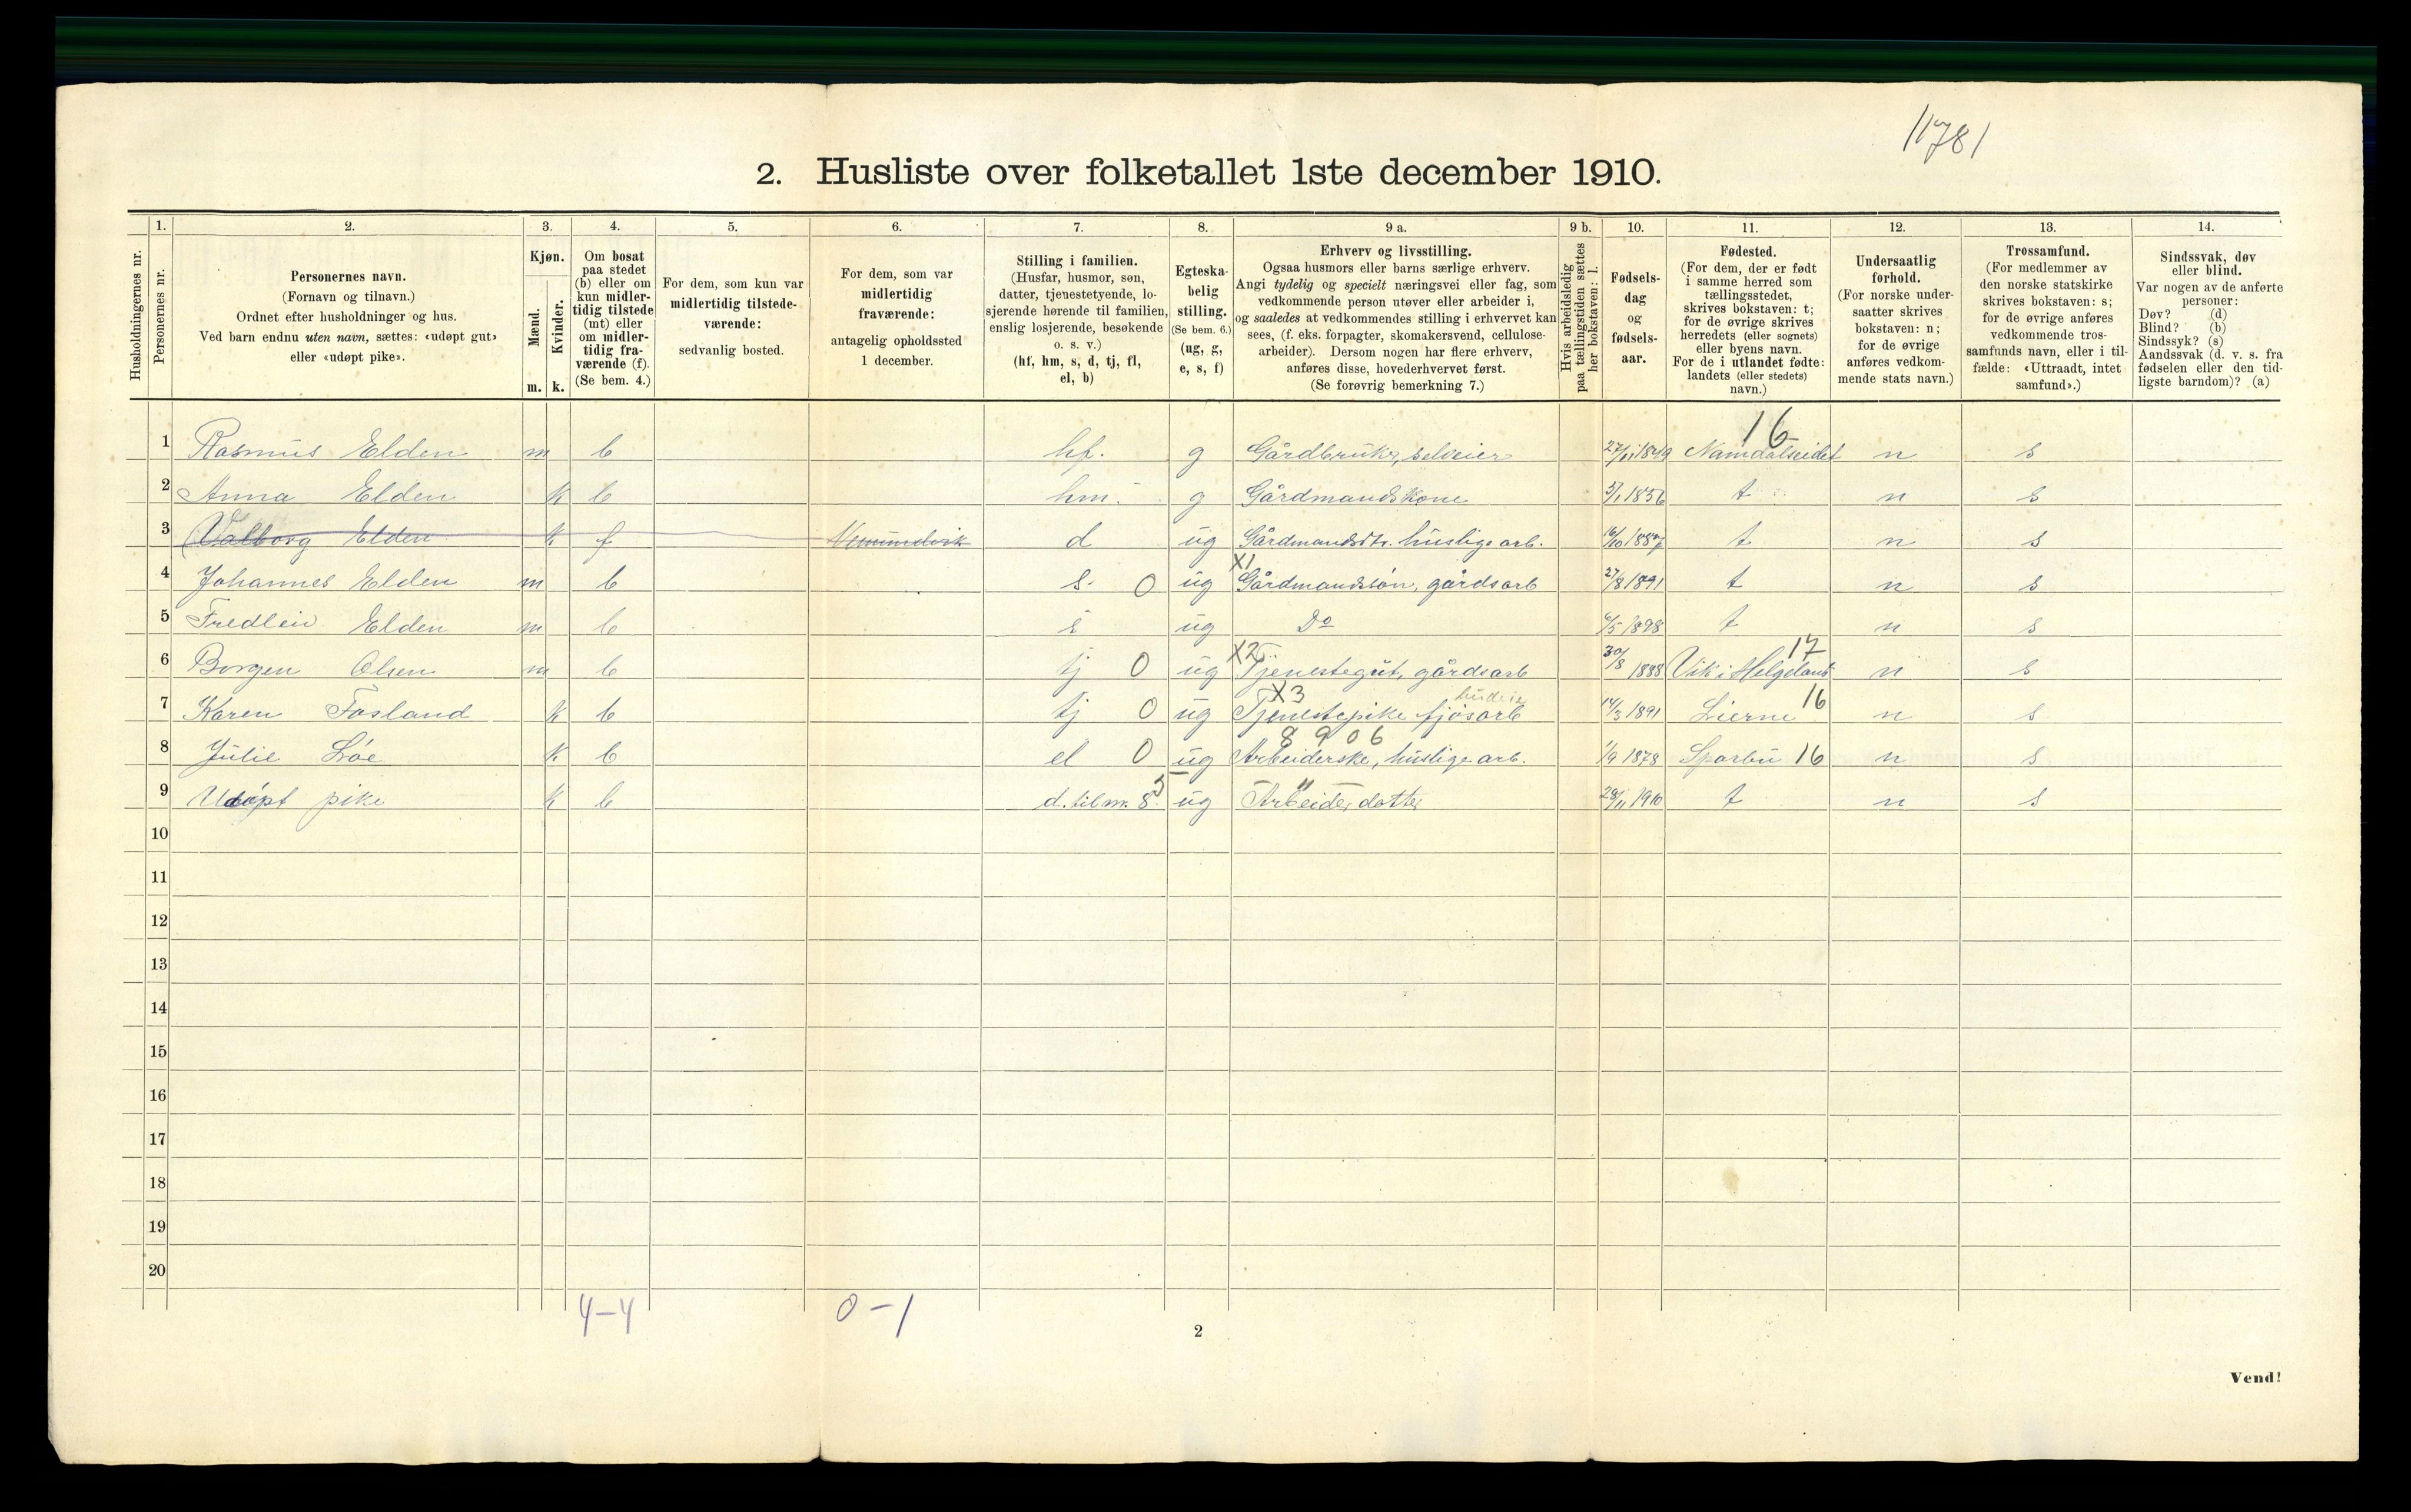 11781
2. Husliste over folketallet 1ste december 1910.
Husholdningernes nr.
1.
Personernes nr.
2.
Personernes navn.
(Fornavn og tilnavn.)
Ordnet efter husholdninger og hus.
Ved barn endnu uten navn, sættes: «udøpt gut»
eller «udøpt pike».
3.
Kjøn.
Mænd.
Kvinder.
m. k.
4.
Om bosat
paa stedet
(b) eller om
kun midler-
tidig tilstede
(mt) eller
om midler-
tidig fra-
værende (f).
(Se bem. 4.)
5.
For dem, som kun var
midlertidig tilstede-
værende:
sedvanlig bosted.
6.
For dem, som var
midlertidig
fraværende:
antagelig opholdssted
1 december.
7.
Stilling i familien.
(Husfar, husmor, søn,
datter, tjenestetyende, lo-
sjerende hørende til familien,
enslig losjerende, besøkende
o. s. v.)
(hf, hm, s, d, tj, fl,
el, b)
8.
Egteska-
belig
stilling.
(Se bem. 6.)
(ug, g,
e, s, f)
9 a.
Erhverv og livsstilling.
Ogsaa husmors eller barns særlige erhverv.
Angi tydelig og specielt næringsvei eller fag, som
vedkommende person utøver eller arbeider i,
og saaledes at vedkommendes stilling i erhvervet kan
sees, (f. eks. forpagter, skomakersvend, cellulose-
arbeider). Dersom nogen har flere erhverv,
anføres disse, hovederhvervet først.
(Se forøvrig bemerkning 7.)
9 b.
Hvis arbeidsledig
paa tællingstiden sættes
her bokstaven: l.
10.
Fødsels-
dag
og
fødsels-
aar.
11.
Fødested.
(For dem, der er født
i samme herred som
tællingsstedet,
skrives bokstaven: t;
for de øvrige skrives
herredets (eller sognets)
eller byens navn.
For de i utlandet fødte:
landets (eller stedets)
navn.)
12.
Undersaatlig
forhold.
(For norske under-
saatter skrives
bokstaven: n;
for de øvrige
anføres vedkom-
mende stats navn.)
13.
Trossamfund.
(For medlemmer av
den norske statskirke
skrives bokstaven: s;
for de øvrige anføres
vedkommende tros-
samfunds navn, eller i til-
fælde: «Uttraadt, intet
samfund».)
14.
Sindssvak, døv
eller blind.
Var nogen av de anførte
personer:
Døv? (d)
Blind? (b)
Sindssyk? (s)
Aandssvak (d. v. s. fra
fødselen eller den tid-
ligste barndom)? (a)
16
1 Rasmus Elden m b hf. g Gårdbruker, selveier 27/11 1849 Namdalseidet n s
2 Anna Elden k b hm. g Gårdmandskone 5/1 1856 t n s
3 Valborg Elden k f d ug Gårdmandsdtr. huslige arb. 16/10 1887 t n s
X1
4 Johannes Elden m b s. 0 ug Gårdmandssøn, gårdsarb 27/8 1891 t n s
5 Fredleiv Elden m b s ug Do 6/5 1898 t n s
X2 17
6 Borgen Olsen m b tj 0 ug Tjenestegut, gårdsarb 30/8 1888 Vik i Helgeland n s
X3
7 Karen Fosland k b tj 0 ug Tjenestepike fjøsarb 14/3 1891 Lierne 16 n s
8 9 0 6
8 Julie Løe k b el 0 ug Arbeiderske, huslige arb. 1/9 1878 Sparbu 16 n s
9 Udøpt pike k b d. til nr. 8. 5 ug Arbeider datter 28/11 1910 t n s
10
11
12
13
14
15
16
17
18
19
20
4-4 0-1
2
Vend!